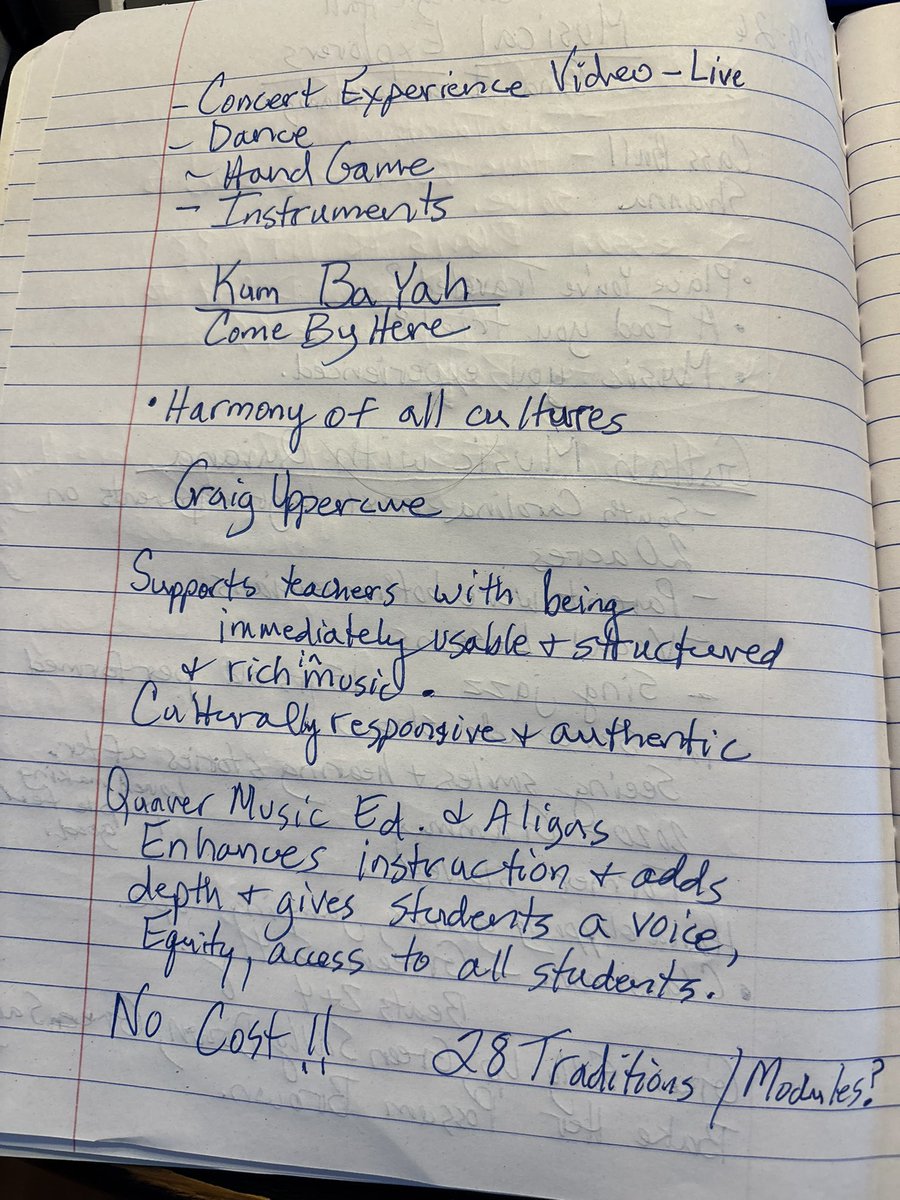 - Concert Experience Video - Live
- Dance
~ Hand Game
- Instruments
Kum Ba Yah
Come By Here
• Harmony of all cultures
Craig Uppercue
Supports teachers with being
immediately usable + structured
+ rich in music.
Culturally responsive + authentic
Quaver Music Ed. & Aligns
Enhances instruction + adds
depth + gives students a voice,
Equity, access to all students.
No Cost!! 28 Traditions / Modules?